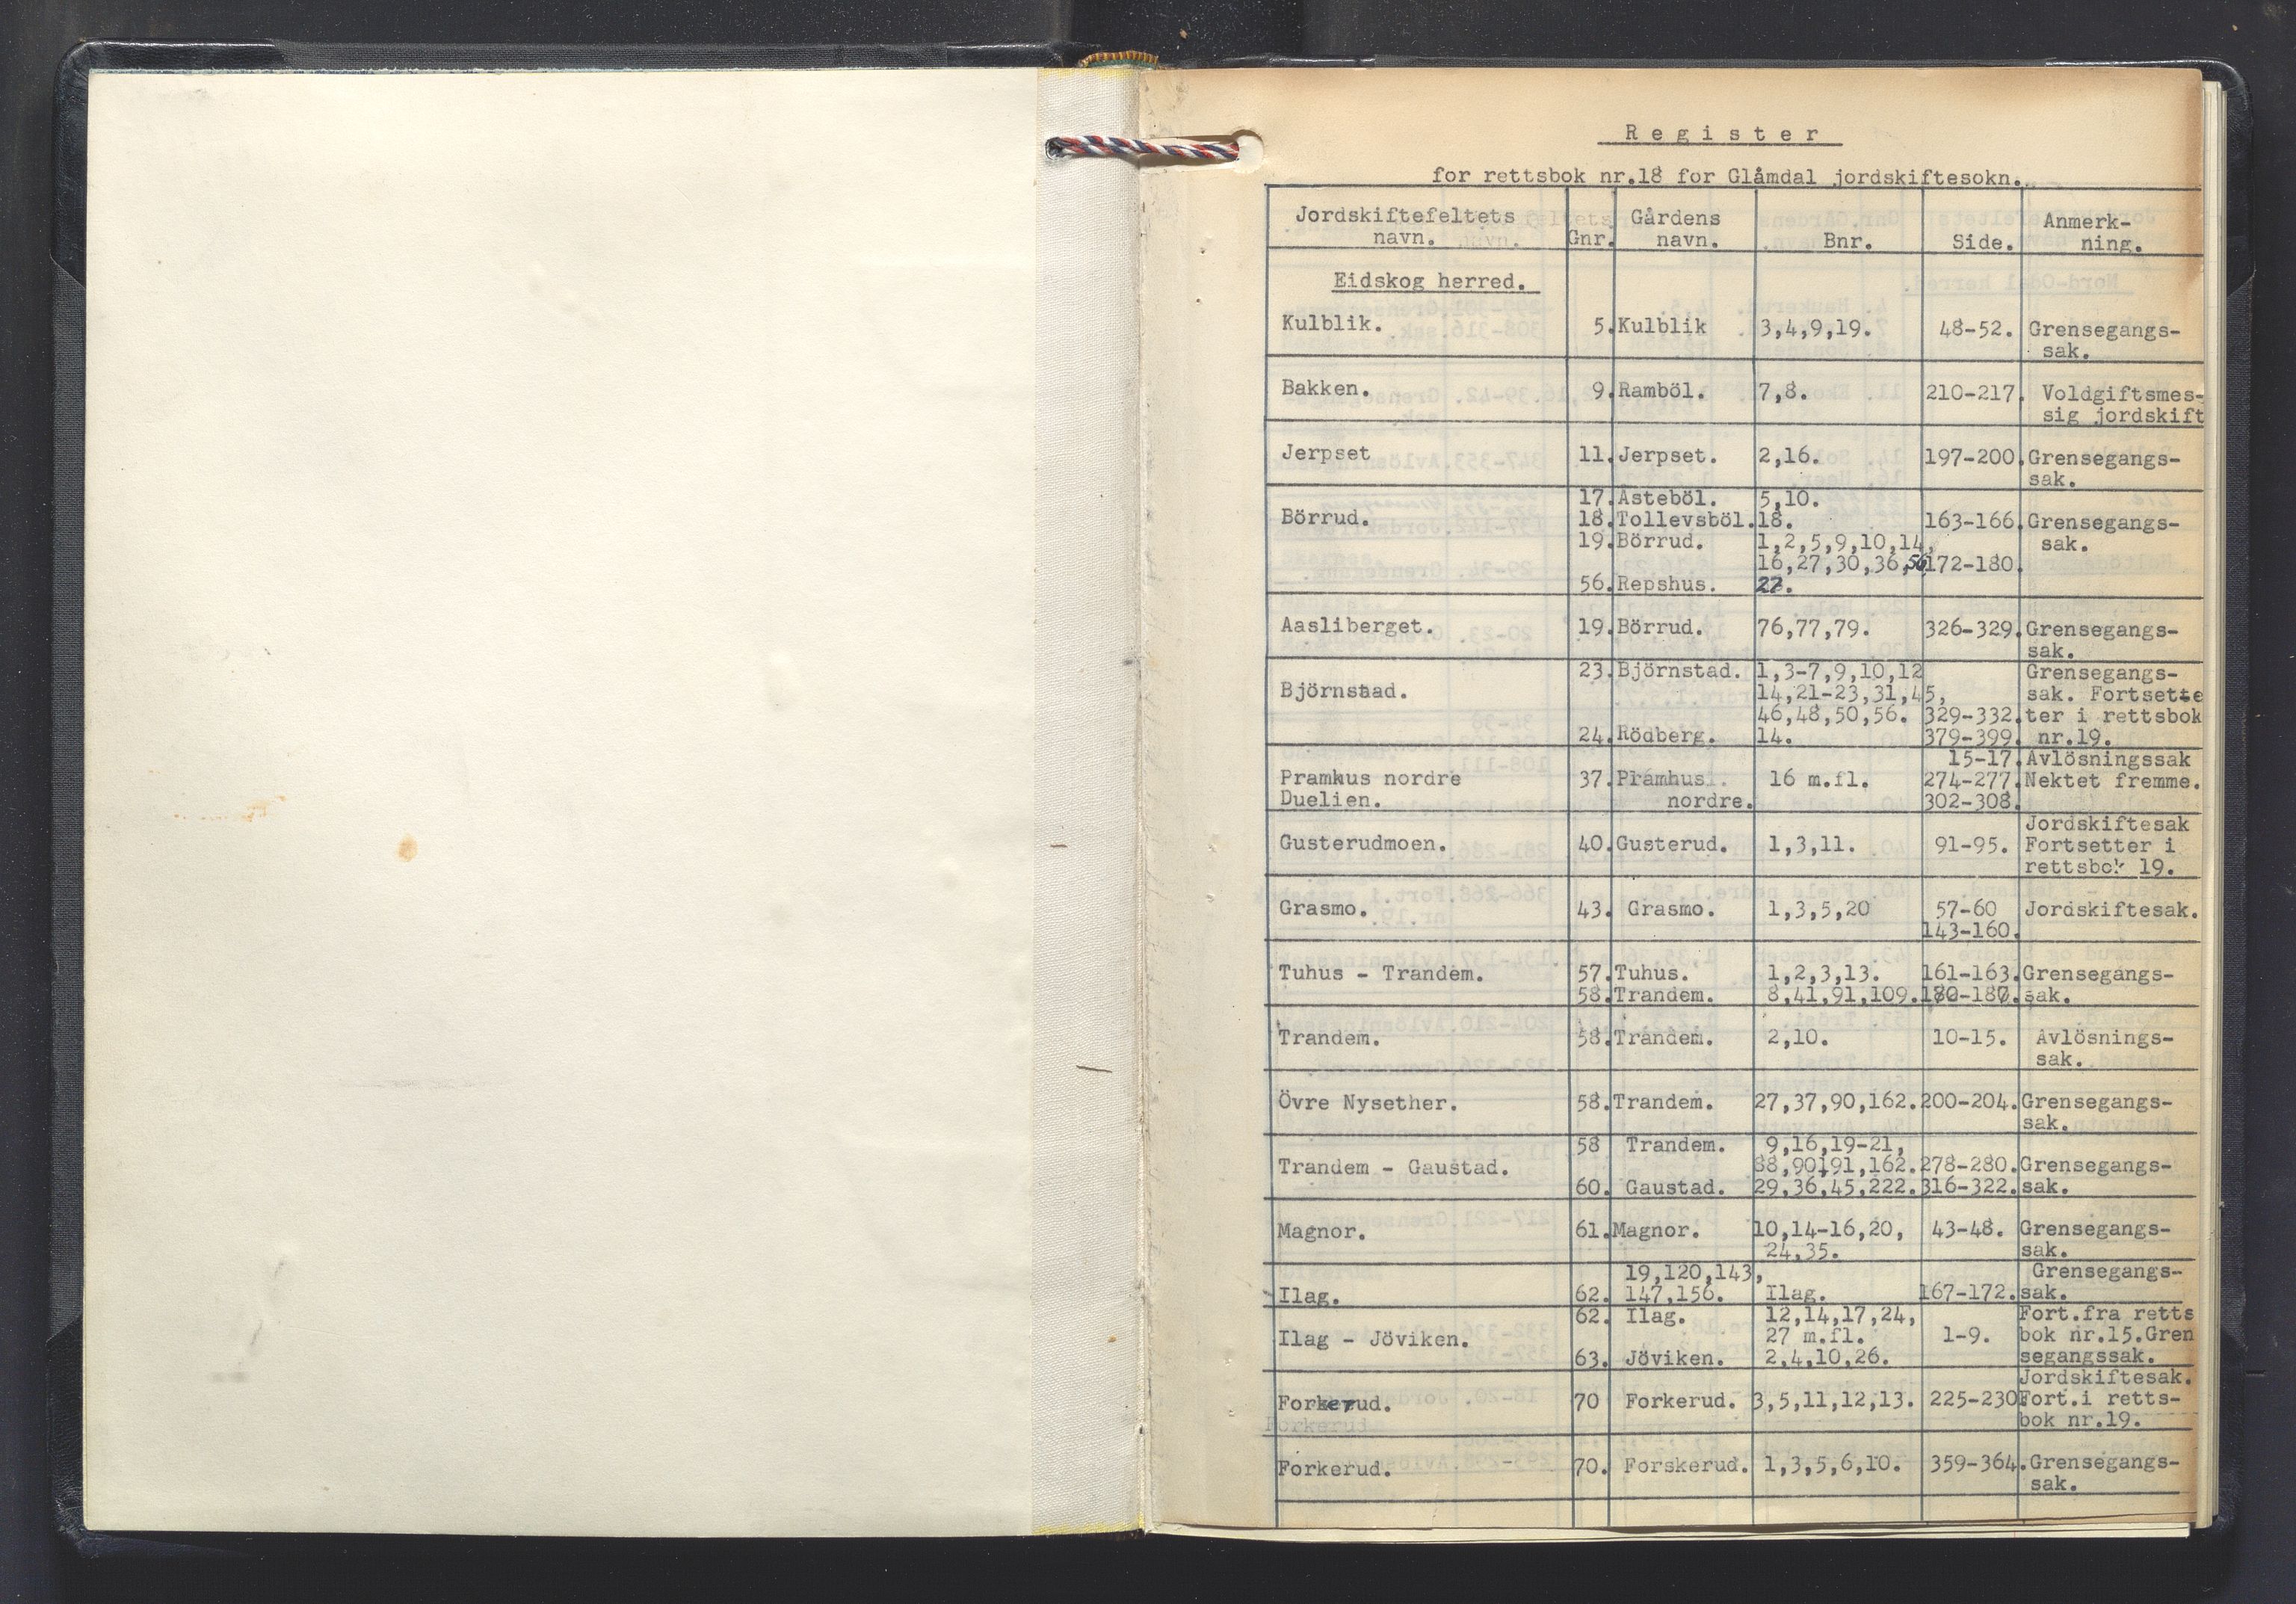 Register
for rettsbok nr.18 for Glåmdal jordskiftesokn.
Jordskiftefeltets Gårdens Anmerk-
navn. Gnr. navn. Bnr. Side. ning.
Eidskog herred.
Kulblik. 5. Kulblik 3,4,9,19. 48-52. Grensegangs-
sak.
Bakken. 9. Ramböl. 7,8. 210-217. Voldgiftsmes-
sig jordskift
Jerpset 11. Jerpset. 2,16. 197-200. Grensegangs-
sak.
17. Åsteböl. 5,10.
Börrud. 18. Tollevsböl. 18. 163-166. Grensegangs-
19. Börrud. 1,2,5,9,10,14, sak.
16,27,30,36,56 172-180.
56. Repshus. 27.
Aasliberget. 19. Börrud. 76,77,79. 326-329. Grensegangs-
sak.
23. Björnstad. 1,3-7,9,10,12 Grensegangs-
Björnstad. 14,21-23,31,45, sak. Fortsette
46,48,50,56. 329-332. ter i rettsbok
24. Rödberg. 14. 379-399. nr.19.
15-17. Avlösningssak
Pramhus nordre 37. Pramhus 16 m.fl. 274-277. Nektet fremme.
Duelien. nordre. 302-308.
Jordskiftesak
Gusterudmoen. 40. Gusterud. 1,3,11. 91-95. Fortsetter i
rettsbok 19.
Grasmo. 43. Grasmo. 1,3,5,20 57-60 Jordskiftesak.
143-160.
Tuhus - Trandem. 57. Tuhus. 1,2,3,13. 161-163. Grensegangs-
58. Trandem. 8,41,91,109. sak.
Trandem. 58. Trandem. 2,10. 10-15. Avlösnings-
sak.
Övre Nysether. 58. Trandem. 27,37,90,162. 200-204. Grensegangs-
sak.
58 Trandem. 9,16,19-21,
Trandem - Gaustad. 88,90,191,162. 278-280. Grensegangs-
60. Gaustad. 29,36,45,222. 316-322. sak.
Magnor. 61. Magnor. 10,14-16,20, 43-48. Grensegangs-
24,35. sak.
19,120,143, Grensegangs-
Ilag. 62. 147,156. Ilag. 167-172. sak.
62. Ilag. 12,14,17,24, Fort.fra retts
Ilag - Jöviken. 27 m.fl. 1-9. bok nr.15.Gren
63. Jöviken. 2,4,10,26. segangssak.
Jordskiftesak.
Forkerud. 70 Forkerud. 3,5,11,12,13. 225-230 Fort.i retts-
Forkerud bok nr.19.
Forkerud. 70. Forskerud. 1,3,5,6,10. 359-364. Grensegangs-
sak.